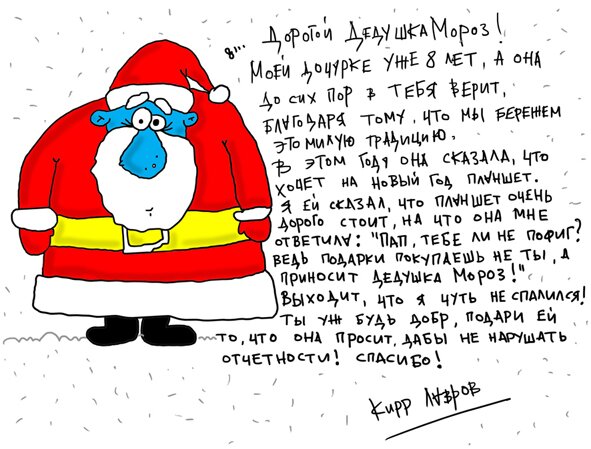 8... ДОРОГОЙ ДЕДУШКА МОРОЗ!
МОЕЙ ДОЧУРКЕ УЖЕ 8 ЛЕТ, А ОНА
ДО СИХ ПОР В ТЕБЯ ВЕРИТ,
БЛАГОДАРЯ ТОМУ, ЧТО МЫ БЕРЕЖЕМ
ЭТО МИЛУЮ ТРАДИЦИЮ.
В ЭТОМ ГОДЯ ОНА СКАЗАЛА, ЧТО
ХОЧЕТ НА НОВЫЙ ГОД ПЛАНШЕТ.
Я ЕЙ СКАЗАЛ, ЧТО ПЛАНШЕТ ОЧЕНЬ
ДОРОГО СТОИТ, НА ЧТО ОНА МНЕ
ОТВЕТИЛА: "ПАП, ТЕБЕ ЛИ НЕ ПОФИГ?
ВЕДЬ ПОДАРКИ ПОКУПАЕШЬ НЕ ТЫ, А
ПРИНОСИТ ДЕДУШКА МОРОЗ!"
ВЫХОДИТ, ЧТО Я ЧУТЬ НЕ СПАЛИЛСЯ!
ТЫ УЖ БУДЬ ДОБР, ПОДАРИ ЕЙ
ТО, ЧТО ОНА ПРОСИТ, ДАБЫ НЕ НАРУШАТЬ
ОТЧЕТНОСТИ! СПАСИБО!
КИРР ЛАВРОВ